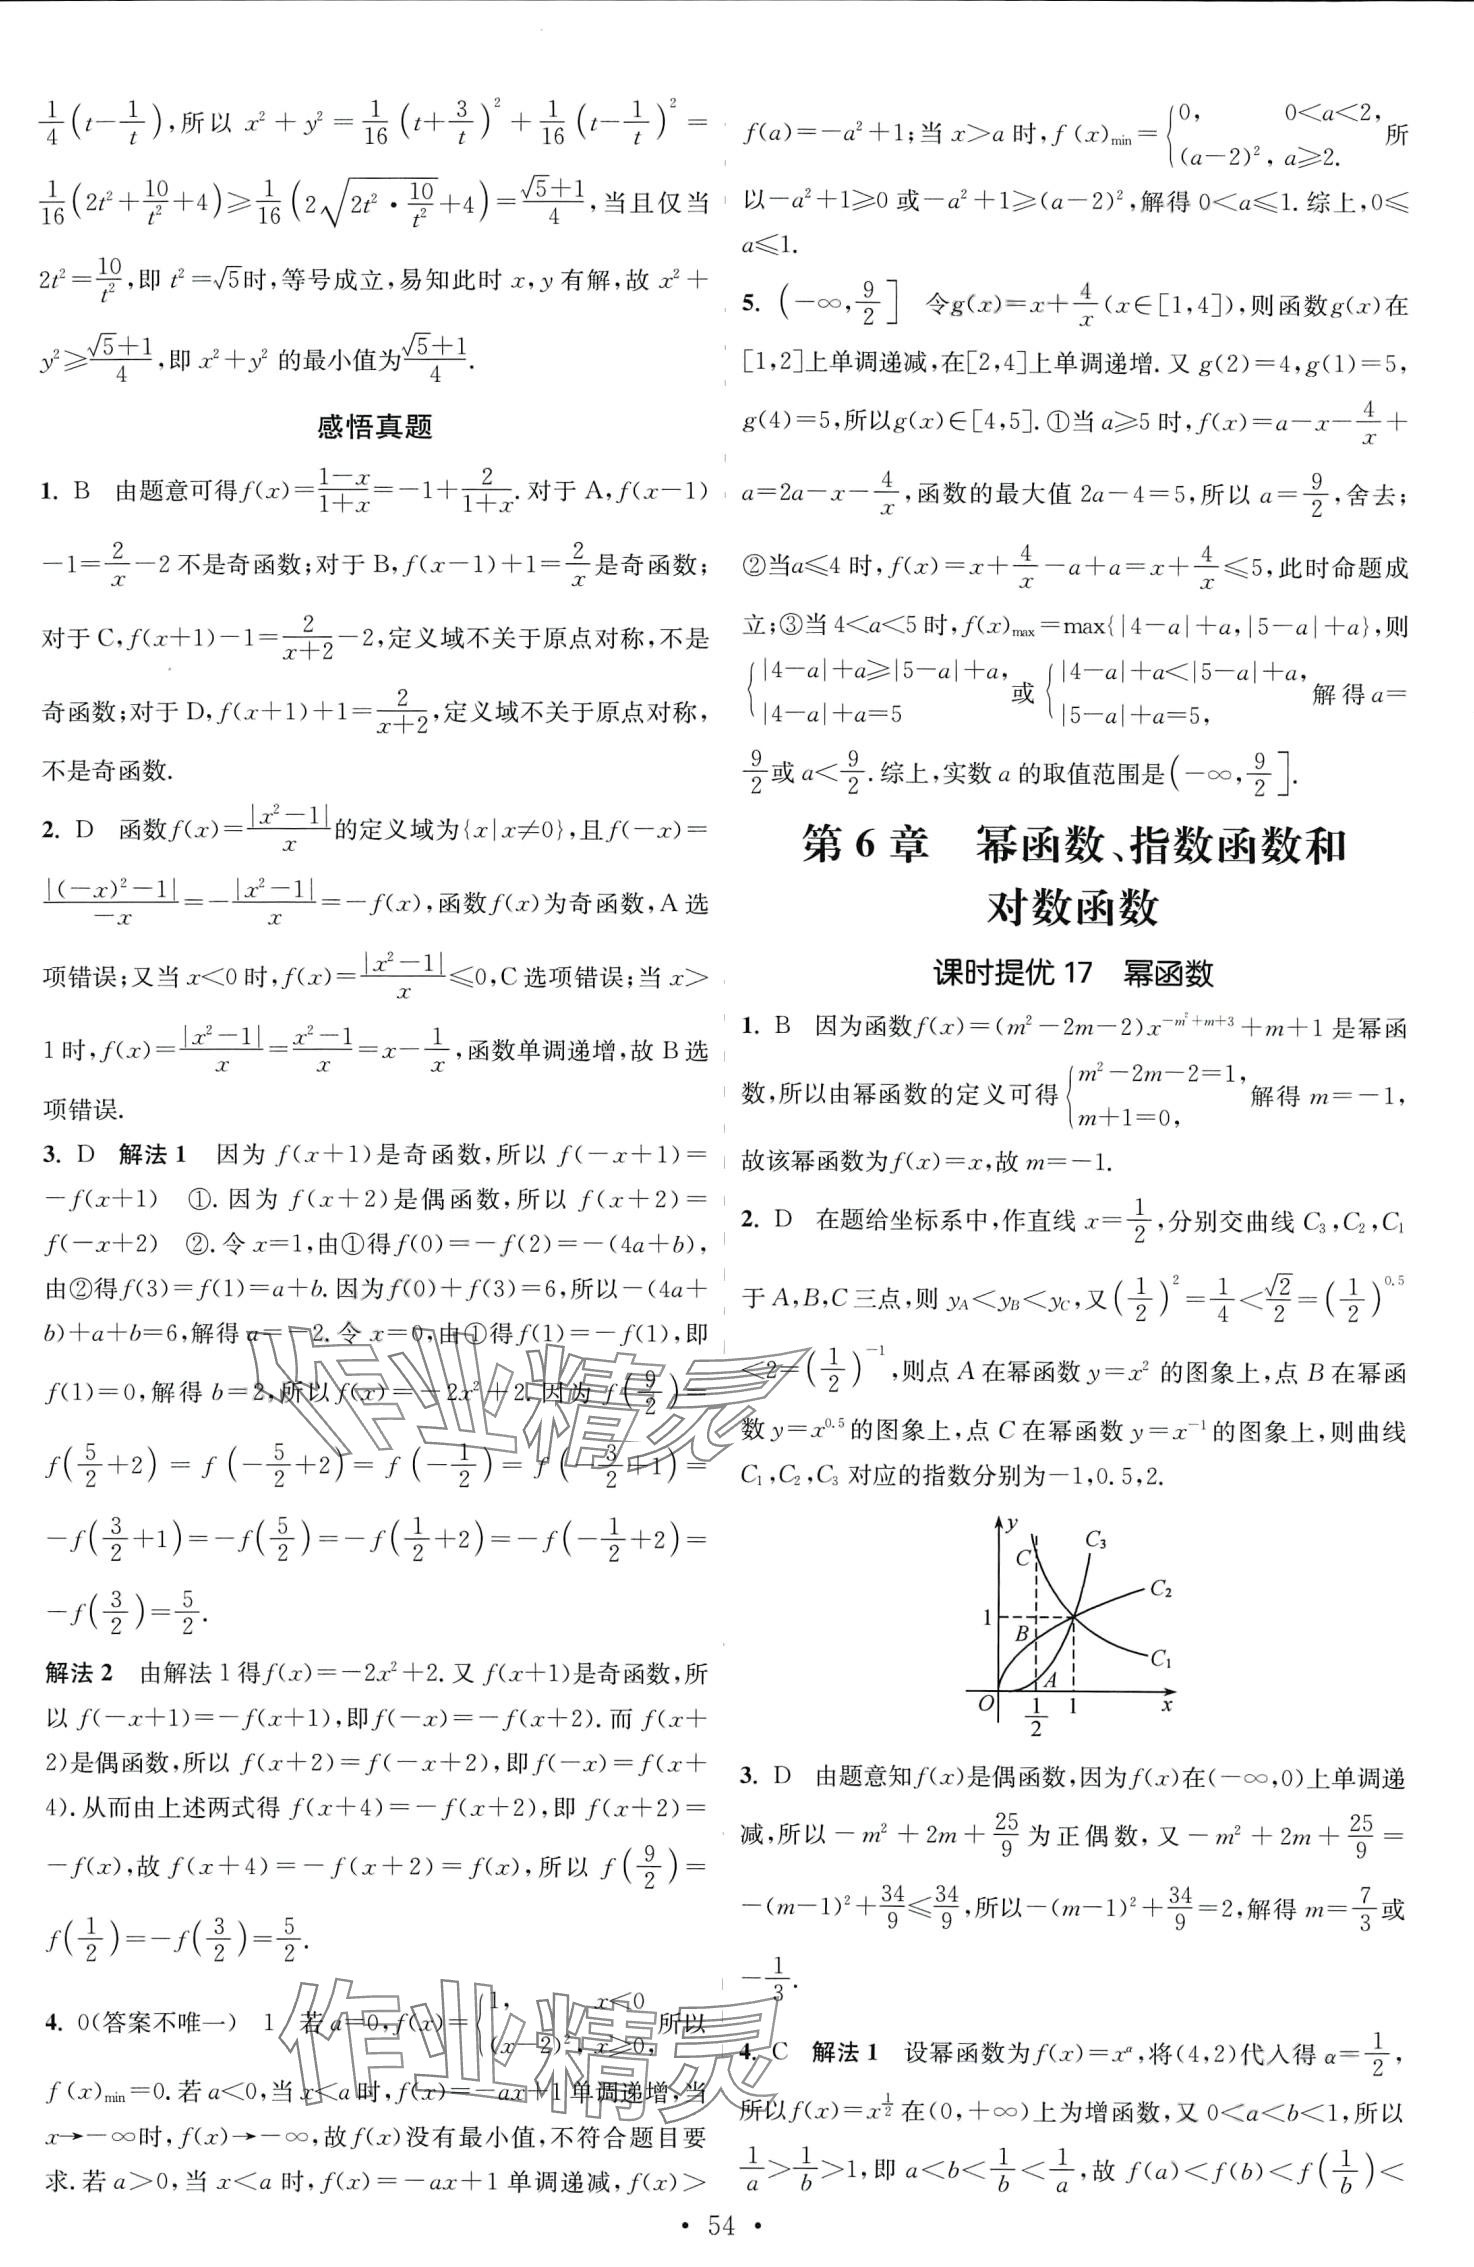 1/4(t−1/t),所以 x²+y²=1/16(t+3/t)²+1/16(t−1/t)²=
1/16(2t²+10/t²+4)≥1/16(2√(2t²·10/t²)+4)=(√5+1)/4,当且仅当
2t²=10/t²,即 t²=√5时,等号成立,易知此时 x,y 有解,故 x²+
y²≥(√5+1)/4,即 x²+y² 的最小值为(√5+1)/4.
感悟真题
1. B 由题意可得f(x)=(1−x)/(1+x)=−1+2/(1+x).对于 A,f(x−1)
−1=2/x−2 不是奇函数;对于 B,f(x−1)+1=2/x是奇函数;
对于 C,f(x+1)−1=2/(x+2)−2,定义域不关于原点对称,不是
奇函数;对于 D,f(x+1)+1=2/(x+2),定义域不关于原点对称,
不是奇函数.
2. D 函数f(x)=|x²−1|/x的定义域为{x|x≠0},且f(−x)=
|(−x)²−1|/−x=−|x²−1|/x=−f(x),函数f(x)为奇函数,A 选
项错误;又当 x<0 时,f(x)=|x²−1|/x≤0,C 选项错误;当 x>
1 时,f(x)=|x²−1|/x=(x²−1)/x=x−1/x,函数单调递增,故 B 选
项错误.
3. D 解法 1 因为 f(x+1)是奇函数,所以 f(−x+1)=
−f(x+1) ①.因为 f(x+2)是偶函数,所以 f(x+2)=
f(−x+2) ②.令 x=1,由①得f(0)=−f(2)=−(4a+b),
由②得f(3)=f(1)=a+b.因为f(0)+f(3)=6,所以−(4a+
b)+a+b=6,解得 a=−2.令 x=0,由①得f(1)=−f(1),即
f(1)=0,解得 b=2,所以f(x)=−2x²+2.因为 f(9/2)=
f(5/2+2)=f(−5/2+2)=f(−1/2)=f(−3/2+1)=
−f(3/2+1)=−f(5/2)=−f(1/2+2)=−f(−1/2+2)=
−f(3/2)=5/2.
解法 2 由解法 1 得f(x)=−2x²+2.又 f(x+1)是奇函数,所
以 f(−x+1)=−f(x+1),即f(−x)=−f(x+2).而 f(x+
2)是偶函数,所以 f(x+2)=f(−x+2),即f(−x)=f(x+
4).从而由上述两式得 f(x+4)=−f(x+2),即 f(x+2)=
−f(x),故 f(x+4)=−f(x+2)=f(x),所以 f(9/2)=
f(1/2)=−f(3/2)=5/2.
4. 0(答案不唯一) 1 若 a=0,f(x)={1, x<0 (x−2)², x≥0, 所以
f(x)min=0.若 a<0,当 x<a 时,f(x)=−ax+1 单调递增,当
x→−∞时,f(x)→−∞,故f(x)没有最小值,不符合题目要
求.若 a>0,当 x<a 时,f(x)=−ax+1 单调递减,f(x)>
f(a)=−a²+1;当 x>a 时,f(x)min={0, 0<a<2, (a−2)², a≥2. 所
以−a²+1≥0 或−a²+1≥(a−2)²,解得 0<a≤1.综上,0≤
a≤1.
5. (−∞,9/2] 令g(x)=x+4/x(x∈[1,4]),则函数g(x)在
[1,2]上单调递减,在[2,4]上单调递增.又 g(2)=4,g(1)=5,
g(4)=5,所以g(x)∈[4,5].①当 a≥5 时,f(x)=a−x−4/x+
a=2a−x−4/x,函数的最大值 2a−4=5,所以 a=9/2,舍去;
②当a≤4 时,f(x)=x+4/x−a+a=x+4/x≤5,此时命题成
立;③当 4<a<5 时,f(x)max=max{|4−a|+a,|5−a|+a},则
{|4−a|+a≥|5−a|+a, |4−a|+a=5 或 {|4−a|+a<|5−a|+a, |5−a|+a=5, 解得a=
9/2或 a<9/2.综上,实数 a 的取值范围是(−∞,9/2].
第 6 章 幂函数、指数函数和
对数函数
课时提优 17 幂函数
1. B 因为函数f(x)=(m²−2m−2)x^(−m²+m+3)+m+1 是幂函
数,所以由幂函数的定义可得{m²−2m−2=1, m+1=0, 解得 m=−1,
故该幂函数为f(x)=x,故 m=−1.
2. D 在题给坐标系中,作直线 x=1/2,分别交曲线 C₃,C₂,C₁
于 A,B,C三点,则 y_A<y_B<y_C,又(1/2)²=1/4<√2/2=(1/2)^0.5
<2=(1/2)⁻¹,则点 A 在幂函数 y=x² 的图象上,点 B 在幂函
数 y=x^0.5的图象上,点 C 在幂函数 y=x⁻¹的图象上,则曲线
C₁,C₂,C₃ 对应的指数分别为−1,0.5,2.
y
C
C₃
C₂
1
B
A
C₁
O
1/2
1
x
3. D 由题意知f(x)是偶函数,因为f(x)在(−∞,0)上单调递
减,所以−m²+2m+25/9 为正偶数,又−m²+2m+25/9=
−(m−1)²+34/9≤34/9,所以−(m−1)²+34/9=2,解得 m=7/3或
−1/3.
4. C 解法 1 设幂函数为f(x)=x^α,将(4,2)代入得 α=1/2,
所以f(x)=x^(1/2)在(0,+∞)上为增函数,又 0<a<b<1,所以
1/a>1/b>1,即 a<b<1/b<1/a,故 f(a)<f(b)<f(1/b)<
• 54 •
作业精灵
作业精灵